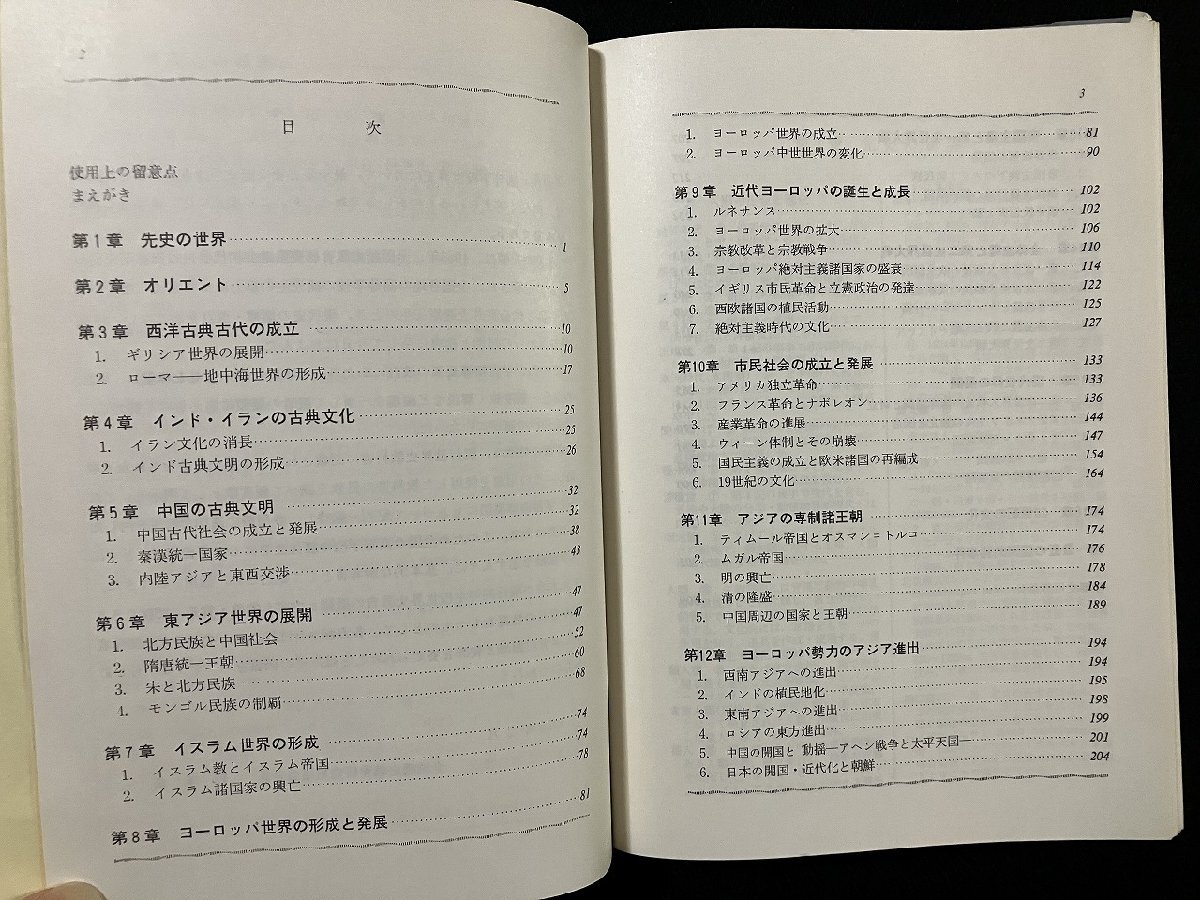 目 次
使用上の留意点
まえがき
第1章 先史の世界…………1
第2章 オリエント…………5
第3章 西洋古典古代の成立…………10
1. ギリシア世界の展開…………10
2. ローマ——地中海世界の形成…………17
第4章 インド・イランの古典文化…………25
1. イラン文化の消長…………25
2. インド古典文明の形成…………26
第5章 中国の古典文明…………32
1. 中国古代社会の成立と発展…………32
2. 秦漢統一国家…………38
3. 内陸アジアと東西交渉…………43
第6章 東アジア世界の展開…………47
1. 北方民族と中国社会…………47
2. 隋唐統一王朝…………52
3. 宋と北方民族…………60
4. モンゴル民族の制覇…………68
第7章 イスラム世界の形成…………74
1. イスラム教とイスラム帝国…………74
2. イスラム諸国家の興亡…………78
第8章 ヨーロッパ世界の形成と発展…………81
3
1. ヨーロッパ世界の成立…………81
2. ヨーロッパ中世世界の変化…………90
第9章 近代ヨーロッパの誕生と成長…………102
1. ルネサンス…………102
2. ヨーロッパ世界の拡大…………106
3. 宗教改革と宗教戦争…………110
4. ヨーロッパ絶対主義諸国家の盛衰…………114
5. イギリス市民革命と立憲政治の発達…………122
6. 西欧諸国の植民活動…………125
7. 絶対主義時代の文化…………127
第10章 市民社会の成立と発展…………133
1. アメリカ独立革命…………133
2. フランス革命とナポレオン…………136
3. 産業革命の進展…………144
4. ウィーン体制とその崩壊…………147
5. 国民主義の成立と欧米諸国の再編成…………154
6. 19世紀の文化…………164
第11章 アジアの専制諸王朝…………174
1. ティムール帝国とオスマン＝トルコ…………174
2. ムガル帝国…………176
3. 明の興亡…………178
4. 清の隆盛…………184
5. 中国周辺の国家と王朝…………189
第12章 ヨーロッパ勢力のアジア進出…………194
1. 西南アジアへの進出…………194
2. インドの植民地化…………195
3. 東南アジアへの進出…………198
4. ロシアの東方進出…………199
5. 中国の開国と動揺—アヘン戦争と太平天国—…………201
6. 日本の開国・近代化と朝鮮…………204